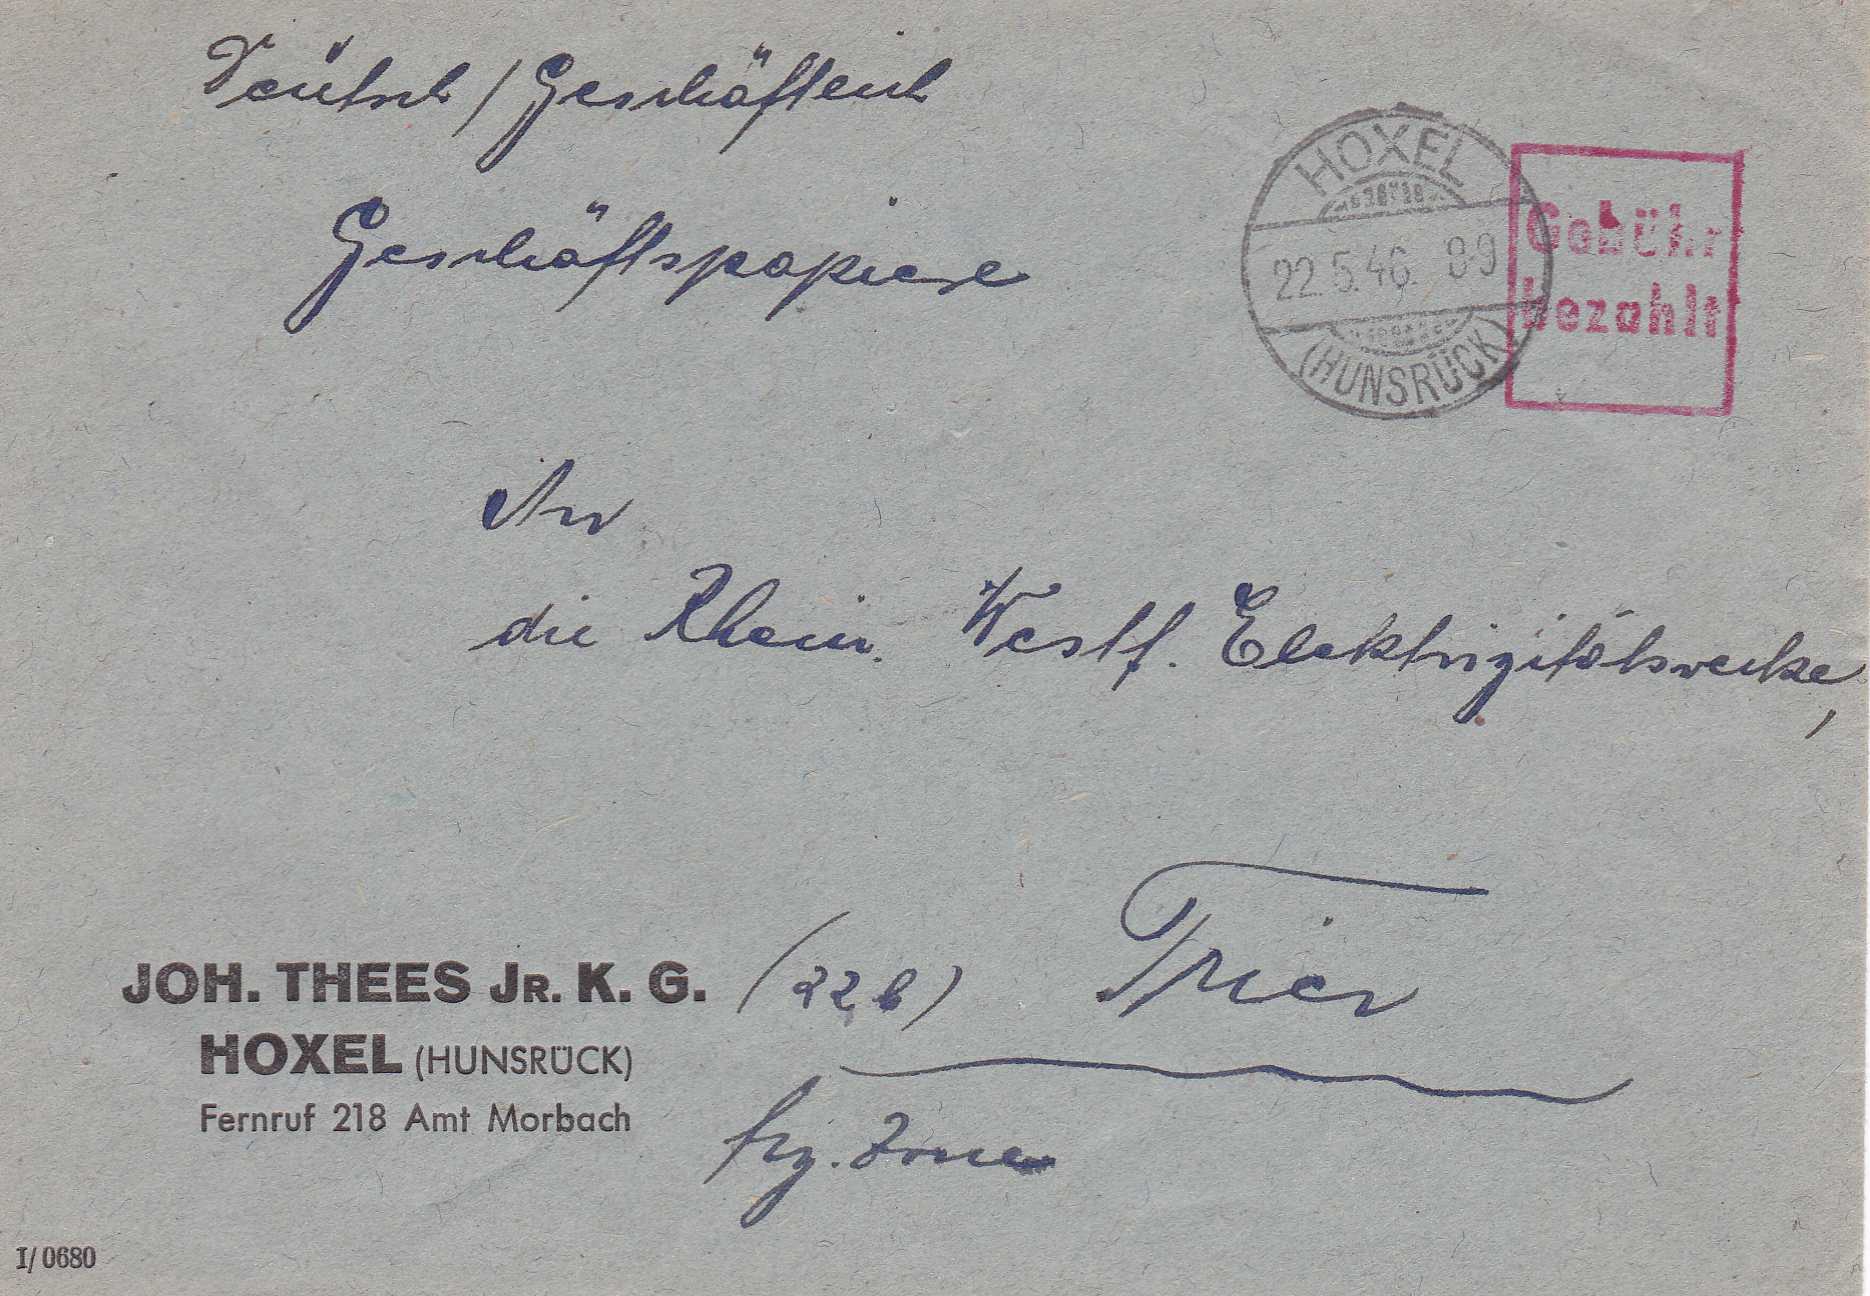 Deutsch / Geschäftlich
Geschäftspapiere
HOXEL
22.5.46. 8-9
(HUNSRÜCK)
Gebühr
bezahlt
An
die Rhein. Westf. Elektrizitätswerke,
(22b) Trier
frz. Zone
JOH. THEES JR. K. G.
HOXEL (HUNSRÜCK)
Fernruf 218 Amt Morbach
I/0680